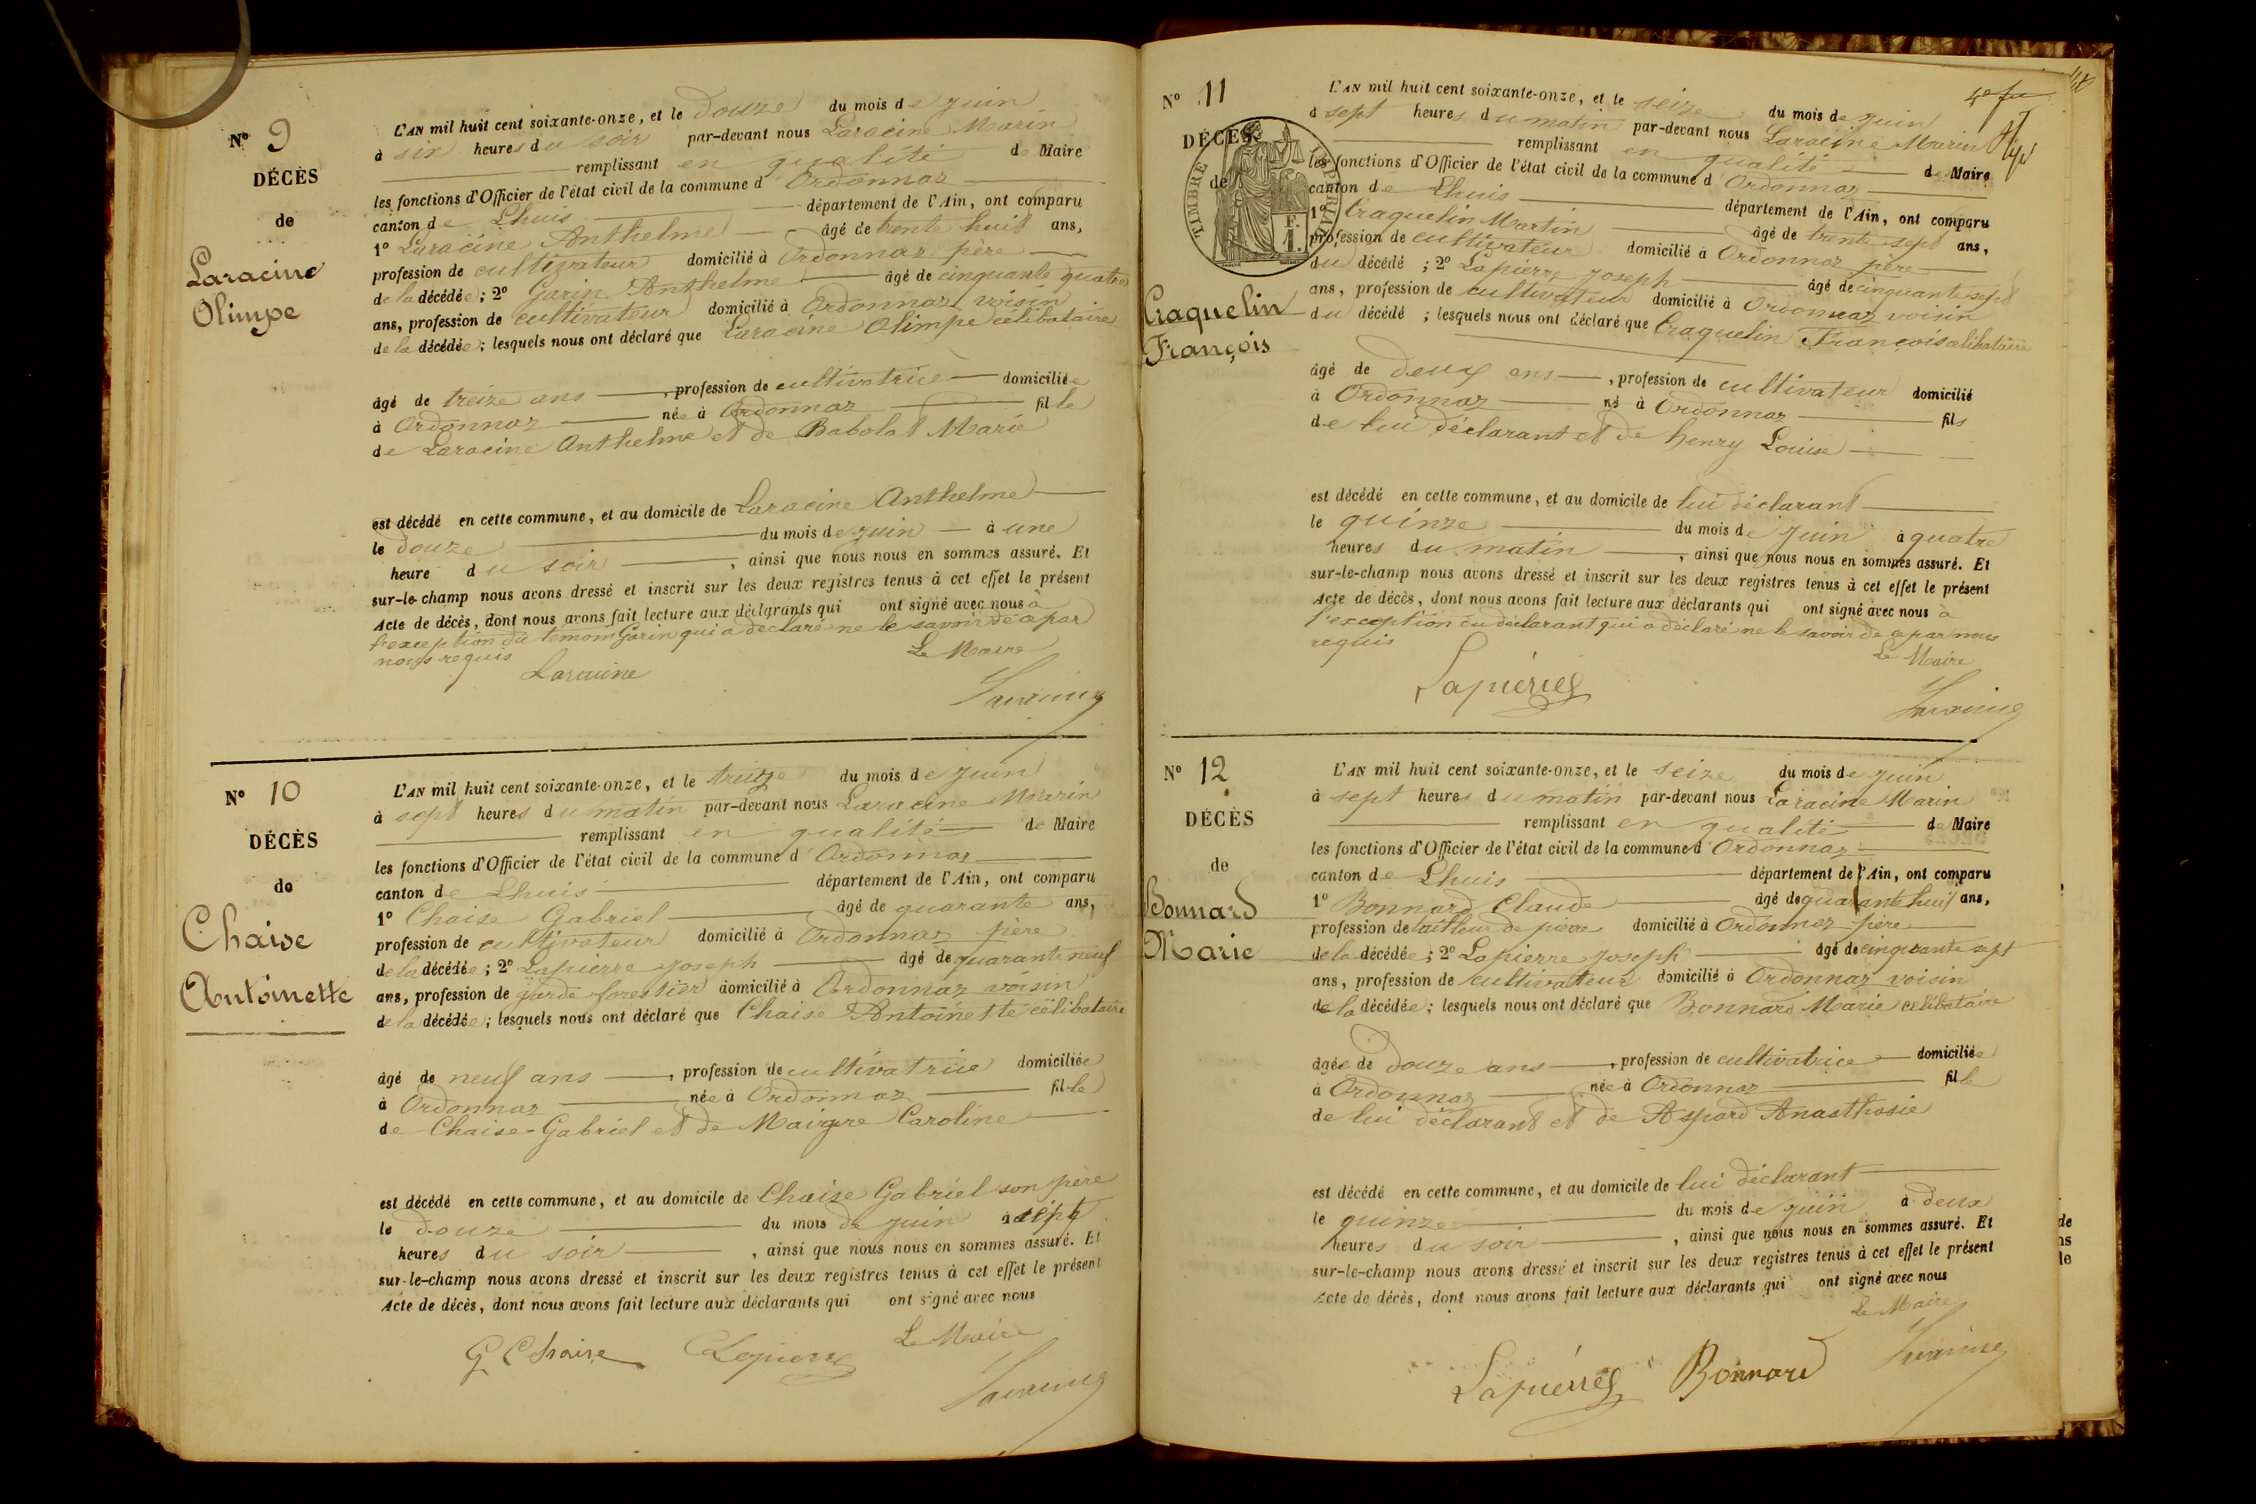 N° 9
DÉCÈS
de
Laracine
Olimpe
L'AN mil huit cent soixante-onze, et le douze du mois de juin
à six heures du soir par-devant nous Laracine Marin
remplissant en qualité de Maire
les fonctions d'Officier de l'état civil de la commune d'Ordonnaz
canton de Lhuis département de l'Ain, ont comparu
1° Laracine Anthelme âgé de trente huit ans,
profession de cultivateur domicilié à Ordonnaz père
de la décédée; 2° Garin Anthelme âgé de cinquante quatre
ans, profession de cultivateur domicilié à Ordonnaz voisin
de la décédée; lesquels nous ont déclaré que Laracine Olimpe célibataire
âgé de treize ans, profession de cultivatrice domiciliée
à Ordonnaz née à Ordonnaz fille
de Laracine Anthelme et de Babolat Marie
est décédé en cette commune, et au domicile de Laracine Anthelme
le douze du mois de juin à une
heure du soir, ainsi que nous nous en sommes assuré. Et
sur-le-champ nous avons dressé et inscrit sur les deux registres tenus à cet effet le présent
Acte de décès, dont nous avons fait lecture aux déclarants qui ont signé avec nous à
l'exception du témoin Garin qui a déclaré ne le savoir de a par
nous requis
Le Maire
Laracine
Laracine
N° 10
DÉCÈS
de
Chaise
Antoinette
L'AN mil huit cent soixante-onze, et le treize du mois de juin
à sept heures du matin par-devant nous Laracine Marin
remplissant en qualité de Maire
les fonctions d'Officier de l'état civil de la commune d'Ordonnaz
canton de Lhuis département de l'Ain, ont comparu
1° Chaise Gabriel âgé de quarante ans,
profession de cultivateur domicilié à Ordonnaz père
de la décédée; 2° Lapierre Joseph âgé de quarante neuf
ans, profession de garde forestier domicilié à Ordonnaz voisin
de la décédée; lesquels nous ont déclaré que Chaise Antoinette célibataire
âgé de neuf ans, profession de cultivatrice domiciliée
à Ordonnaz née à Ordonnaz fille
de Chaise Gabriel et de Maigre Caroline
est décédé en cette commune, et au domicile de Chaise Gabriel son père
le douze du mois de juin à sept
heures du soir, ainsi que nous nous en sommes assuré. Et
sur-le-champ nous avons dressé et inscrit sur les deux registres tenus à cet effet le présent
Acte de décès, dont nous avons fait lecture aux déclarants qui ont signé avec nous
Le Maire
G Chaise Lapierre
Laracine
N° 11
DÉCÈS
de
TIMBRE IMPÉRIAL
1 F.
Craquelin
François
L'AN mil huit cent soixante-onze, et le seize du mois de juin
à sept heures du matin par-devant nous Laracine Marin
remplissant en qualité de Maire
les fonctions d'Officier de l'état civil de la commune d'Ordonnaz
canton de Lhuis département de l'Ain, ont comparu
1° Craquelin Martin âgé de trente sept ans,
profession de cultivateur domicilié à Ordonnaz père
du décédé; 2° Lapierre Joseph âgé de cinquante sept
ans, profession de cultivateur domicilié à Ordonnaz voisin
du décédé; lesquels nous ont déclaré que Craquelin François célibataire
âgé de deux ans, profession de cultivateur domicilié
à Ordonnaz né à Ordonnaz fils
de lui déclarant et de henry Louise
est décédé en cette commune, et au domicile de lui déclarant
le quinze du mois de juin à quatre
heures du matin, ainsi que nous nous en sommes assuré. Et
sur-le-champ nous avons dressé et inscrit sur les deux registres tenus à cet effet le présent
Acte de décès, dont nous avons fait lecture aux déclarants qui ont signé avec nous à
l'exception du déclarant qui a déclaré ne le savoir de a par nous
requis
Le Maire
Lapierre
Laracine
N° 12
DÉCÈS
de
Bonnard
Marie
L'AN mil huit cent soixante-onze, et le seize du mois de juin
à sept heures du matin par-devant nous Laracine Marin
remplissant en qualité de Maire
les fonctions d'Officier de l'état civil de la commune d'Ordonnaz
canton de Lhuis département de l'Ain, ont comparu
1° Bonnard Claude âgé de quarante huit ans,
profession de tailleur de pierre domicilié à Ordonnaz père
de la décédée; 2° Lapierre Joseph âgé de cinquante sept
ans, profession de cultivateur domicilié à Ordonnaz voisin
de la décédée; lesquels nous ont déclaré que Bonnard Marie célibataire
âgée de douze ans, profession de cultivatrice domiciliée
à Ordonnaz née à Ordonnaz fille
de lui déclarant et de Aspard Anasthasie
est décédé en cette commune, et au domicile de lui déclarant
le quinze du mois de juin à deux
heures du soir, ainsi que nous nous en sommes assuré. Et
sur-le-champ nous avons dressé et inscrit sur les deux registres tenus à cet effet le présent
Acte de décès, dont nous avons fait lecture aux déclarants qui ont signé avec nous
Le Maire
Lapierre Bonnard
Laracine